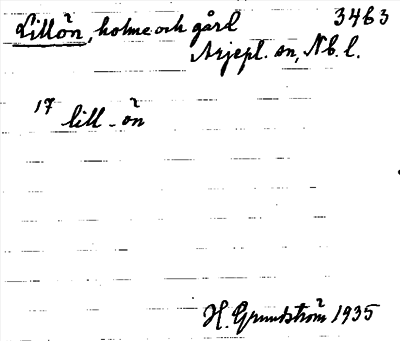 Lillön, holme och gård 3463
Arjepl. sn, Nb. l.
17 lill-ön
H. Grundström 1935